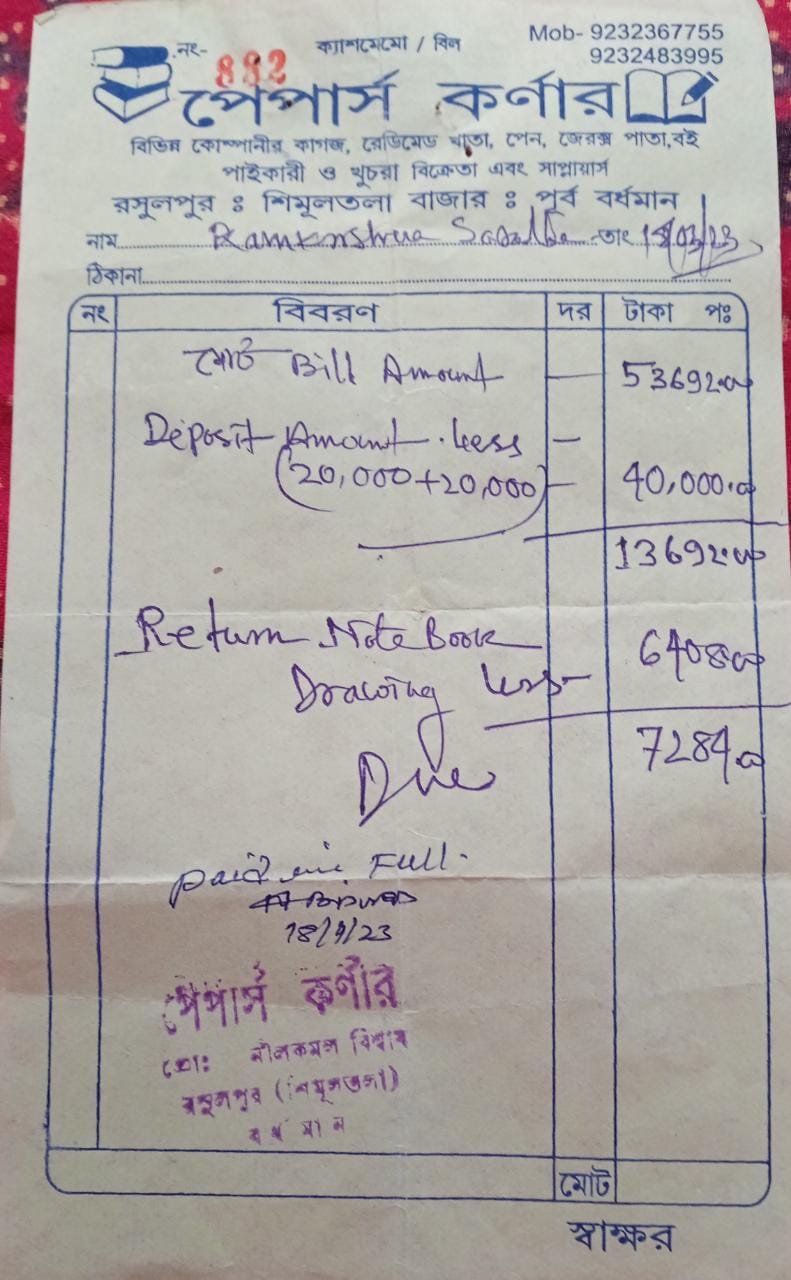 নং- 882 ক্যাশমেমো / বিল Mob- 9232367755
9232483995
পেপার্স কর্ণার
বিভিন্ন কোম্পানীর কাগজ, রেডিমেড খাতা, পেন, জেরক্স পাতা,বই
পাইকারী ও খুচরা বিক্রেতা এবং সাপ্লায়ার্স
রসুলপুর : শিমূলতলা বাজার : পূর্ব বর্ধমান
নাম তাং
ঠিকানা
নং বিবরণ দর টাকা পঃ
মোট Bill Amount — 53692.00
Deposit Amount. Less —
(20,000+20,000) — 40,000.00
13692.00
Return Note Book 6408.00
Drawing Less-
7284.00
Due
paid in Full.
18/4/23
পেপার্স কর্ণার
প্রোঃ নীলকমল বিশ্বাস
রসুলপুর (শিমূলতলা)
বর্ধমান
মোট
স্বাক্ষর